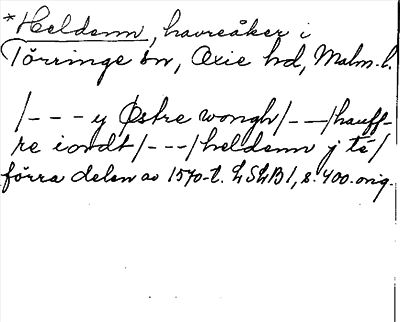 *Heldenn, havreåker i
Törringe sn, Oxie hd, Malm. l.
/--- y Østre wongh/---/hauff-
re iordt/---/heldenn j té/
förra delen av 1570-t. LSLB1, s. 400. orig.